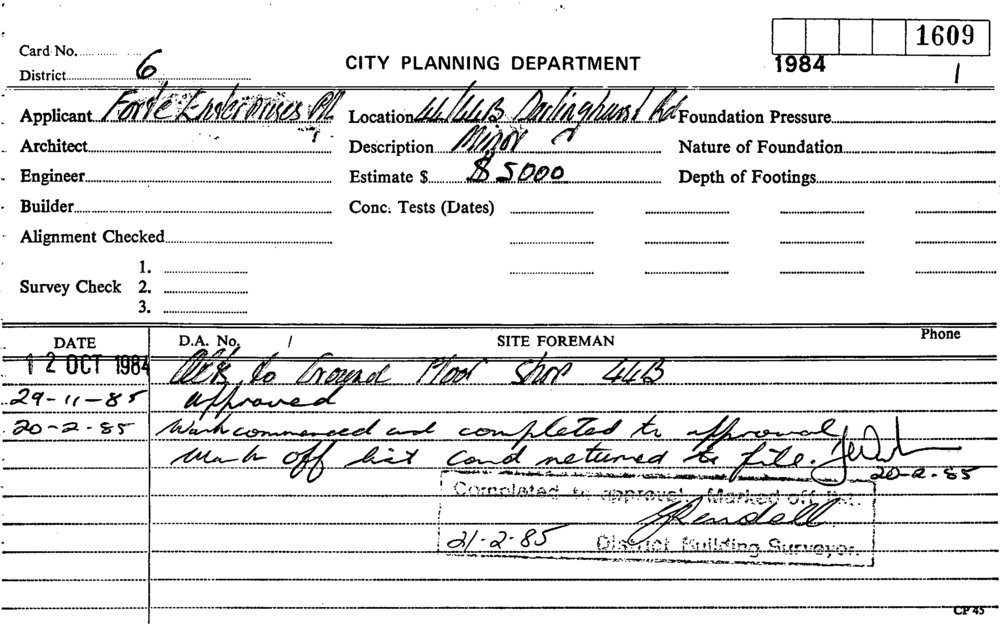 1609
Card No. 1984
District 6 CITY PLANNING DEPARTMENT 1
Applicant Forte Enterprises P/L Location 44/44B Darlinghurst Rd Foundation Pressure
Architect Description Minor Nature of Foundation
Engineer Estimate $ $5000 Depth of Footings
Builder Conc. Tests (Dates)
Alignment Checked
1.
Survey Check 2.
3.
DATE D.A. No. / SITE FOREMAN Phone
12 OCT 1984 Alts to Ground Floor Shop 44B
29-11-85 approved
20-2-85 Work commenced and completed to approval
Mark off list card returned to file.
20-2-85
Completed to approval. Marked off list.
21-2-85 District Building Surveyor.
CP 45